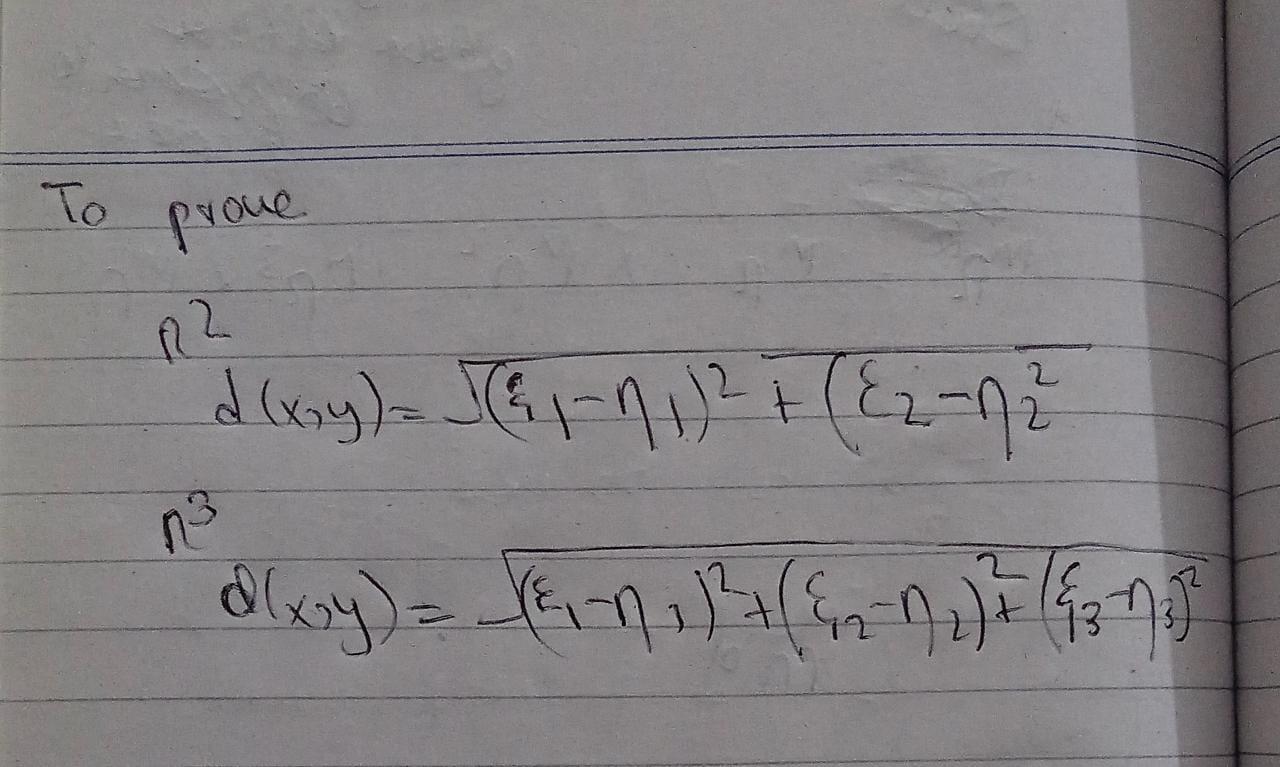 To prove
R²
d(x,y)= √(ξ₁-η₁)² + (ξ₂-η₂²
R³
d(x,y)= √(ξ₁-η₁)²+(ξ₂-η₂)²+(ξ₃-η₃)²